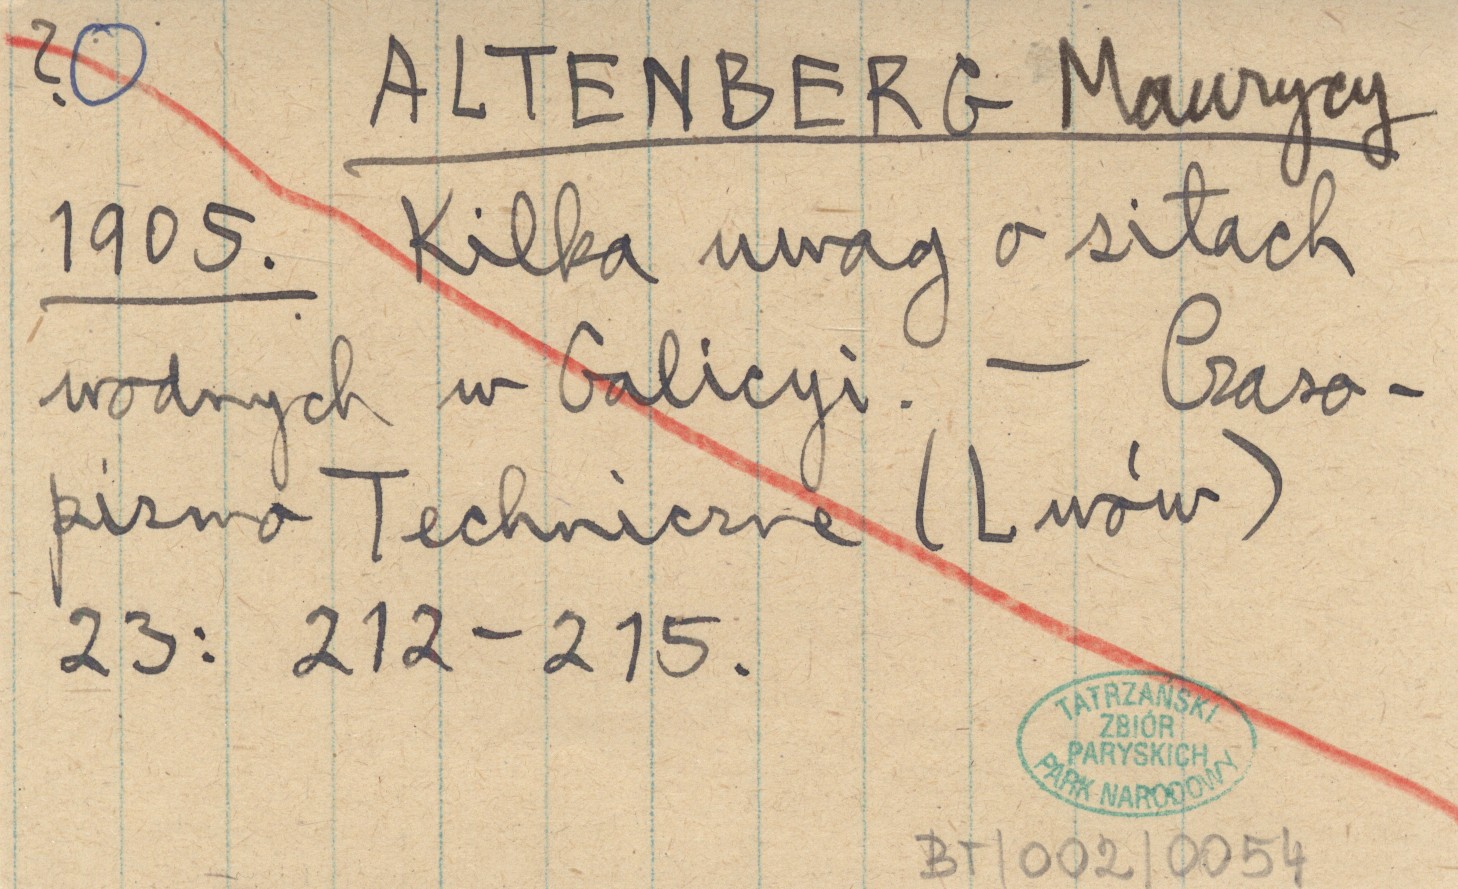 ?
ALTENBERG Maurycy
1905. Kilka uwag o siłach
wodnych w Galicyi. — Czaso-
pismo Techniczne (Lwów)
23: 212-215.
TATRZAŃSKI
ZBIÓR
PARYSKICH
PARK NARODOWY
BT/002/0054